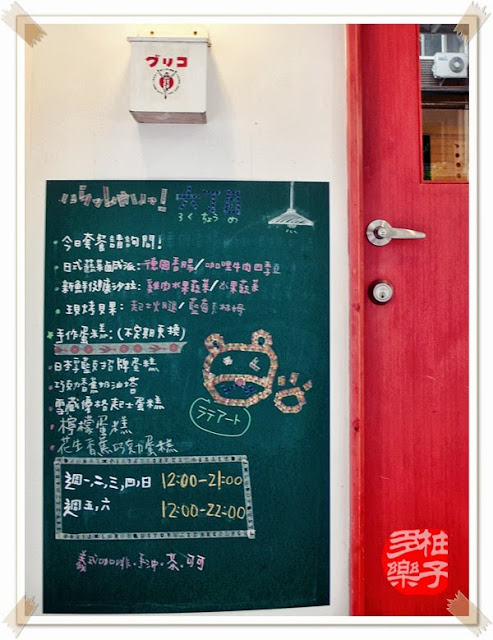 グリコ
いらっしゃいっ! 六丁目
ろくちょうめ
今日套餐請詢問!
日式蔬菜鹹派:德國香腸/咖哩牛肉四季豆
新鮮健康沙拉:雞肉水果蔬菜/水果蔬菜
現烤貝果:起士火腿/藍莓
手作蛋糕:(不定期更換)
招牌蛋糕
巧克力香蕉奶油塔
雪藏優格起士蛋糕
檸檬蛋糕
花生香蕉巧克力蛋糕
週一,二,三,四,日 12:00-21:00
週五,六 12:00-22:00
義式咖啡.手沖.茶.可可
ラテアート
柚子多樂